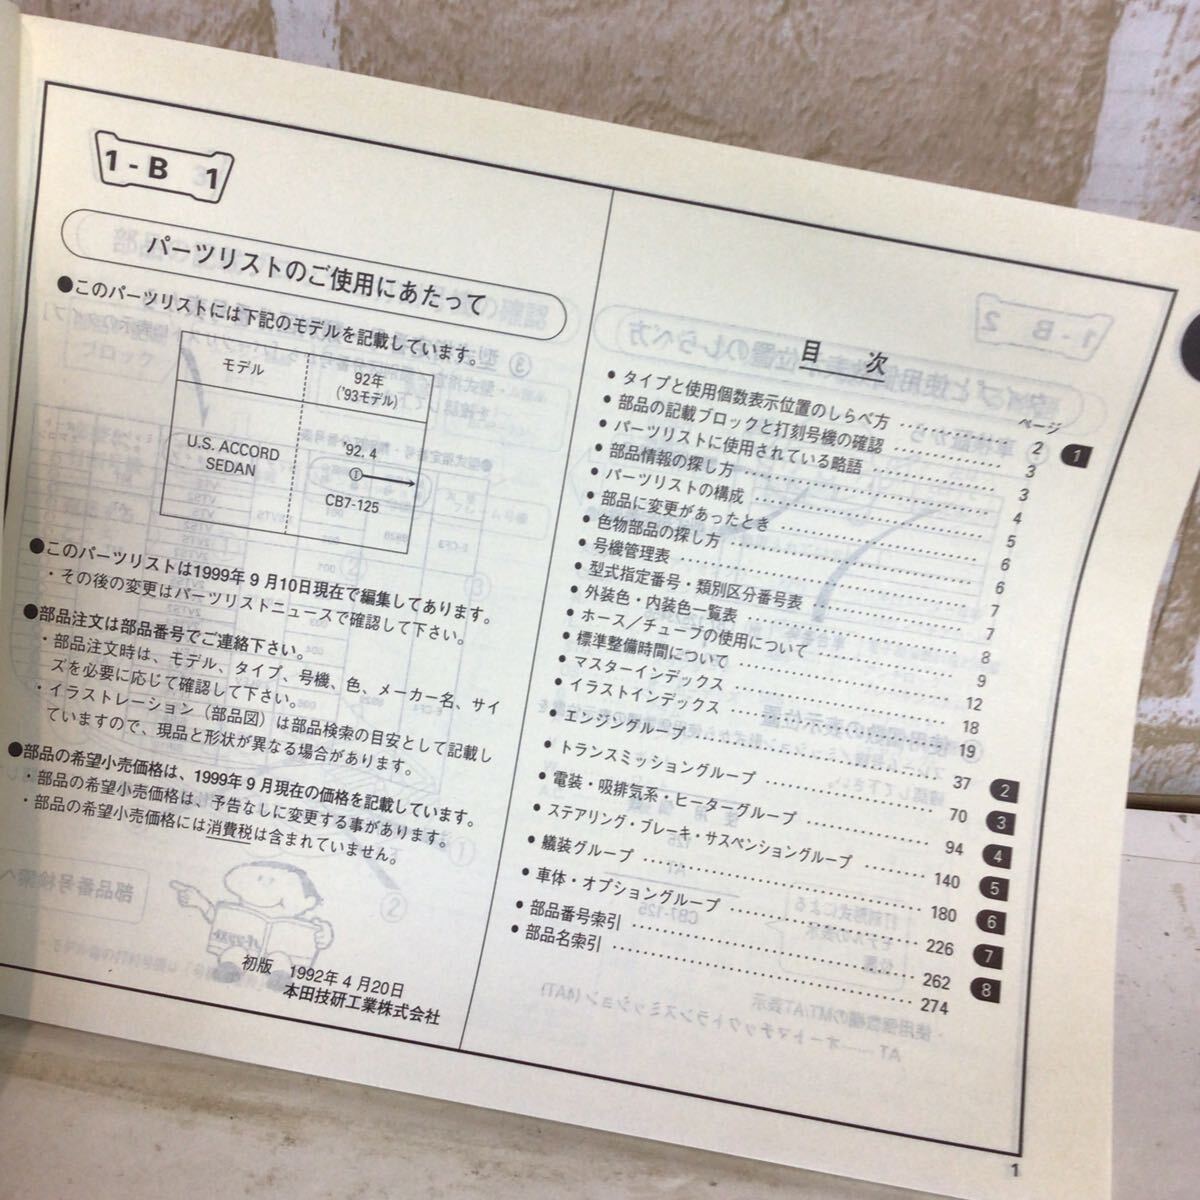 1 - B 1
パーツリストのご使用にあたって
●このパーツリストには下記のモデルを記載しています。
モデル
92年
('93モデル)
U.S. ACCORD
SEDAN
'92. 4
①
CB7-125
●このパーツリストは1999年9月10日現在で編集してあります。
・その後の変更はパーツリストニュースで確認して下さい。
●部品注文は部品番号でご連絡下さい。
・部品注文時は、モデル、タイプ、号機、色、メーカー名、サイ
ズを必要に応じて確認して下さい。
・イラストレーション（部品図）は部品検索の目安として記載し
ていますので、現品と形状が異なる場合があります。
●部品の希望小売価格は、1999年9月現在の価格を記載しています。
・部品の希望小売価格は、予告なしに変更する事があります。
・部品の希望小売価格には消費税は含まれていません。
パーツリスト
初版 1992年4月20日
本田技研工業株式会社
目 次
ページ
• タイプと使用個数表示位置のしらべ方 2 1
• 部品の記載ブロックと打刻号機の確認 3
• パーツリストに使用されている略語 3
• 部品情報の探し方 4
• パーツリストの構成 5
• 部品に変更があったとき 6
• 色物部品の探し方 6
• 号機管理表 7
• 型式指定番号・類別区分番号表 7
• 外装色・内装色一覧表 8
• ホース／チューブの使用について 9
• 標準整備時間について 12
• マスターインデックス 18
• イラストインデックス 19
• エンジングループ 37 2
• トランスミッショングループ 70 3
• 電装・吸排気系・ヒーターグループ 94 4
• ステアリング・ブレーキ・サスペンショングループ 140 5
• 艤装グループ 180 6
• 車体・オプショングループ 226 7
• 部品番号索引 262 8
• 部品名索引 274
1